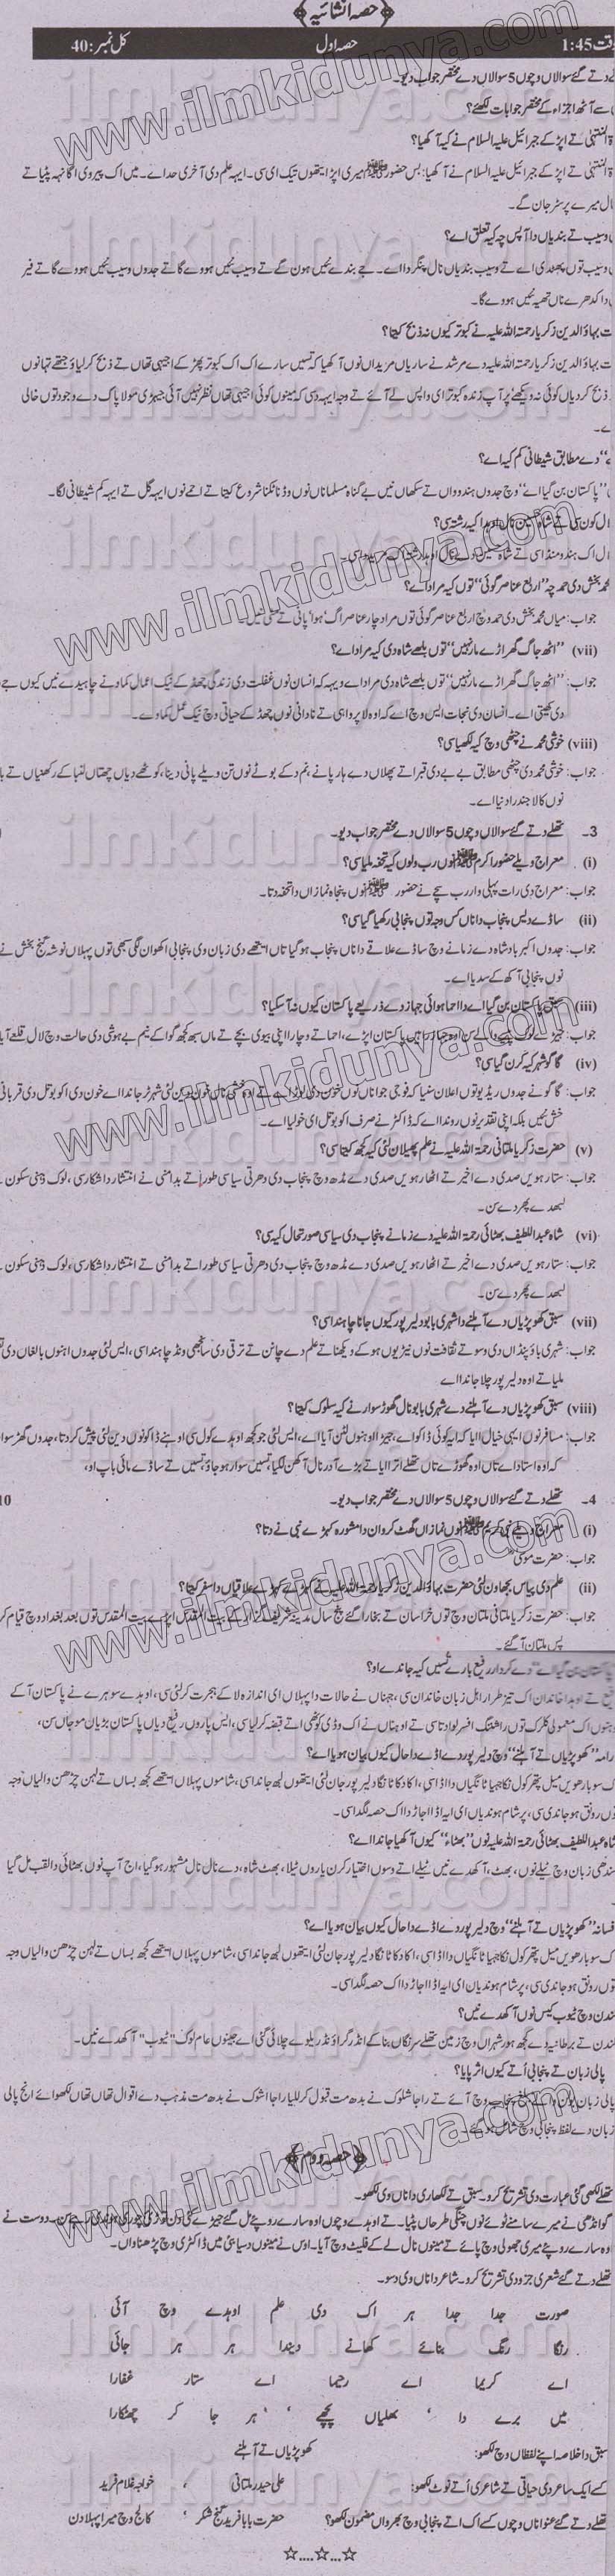 ﴿حصہ انشائیہ﴾
وقت 1:45 حصہ اول کل نمبر: 40
دتے گئے سوالاں وچوں 5 سوالاں دے مختصر جواب دیو۔
سے آٹھ اجزاء کے مختصر جوابات لکھئے؟
المنتہیٰ تے اپڑ کے جبرائیل علیہ السلام نے کیہ آکھیا؟
المنتہیٰ تے اپڑ کے جبرائیل علیہ السلام نے آکھیا: بس حضور ﷺ میری اپڑ ایتھوں تیک ای سی۔ ایہہ علم دی آخری حد اے۔ میں اک پیروی اگانہہ پٹیا تے
ال میرے پر سڑ جان گے۔
وسیب تے بندیاں دا آپس چہ کیہ تعلق اے؟
وسیب توں بھلدی اے تے وسیب بندیاں نال پنگردا اے۔ جے بندے نئیں ہون گے تے وسیب نئیں ہووے گا تے جدوں وسیب نئیں ہووے گا تے فیر
دا کدھرے ناں تھیہہ نئیں ہووے گا۔
بہاؤالدین زکریا رحمتہ اللہ علیہ نے کبوتر کیوں نہ ذبح کیتا؟
بہاؤالدین زکریا رحمتہ اللہ علیہ دے مرشد نے ساریاں مریداں نوں آکھیا کہ تسیں سارے اک اک کبوتر پھڑ کے اجیہی تھاں تے ذبح کر لیاؤ جتھے تہانوں
ذبح کردیاں کوئی نہ ویکھے، پر آپ زندہ کبوتر ای واپس لے آئے تے وجہ ایہہ دسی کہ مینوں کوئی اجیہی تھاں نظر نہیں آئی جیہڑی مولا پاک دے وجود توں خالی
دے مطابق شیطانی کم کیہ اے؟
"پاکستان بن گیا اے" وچ جدوں ہندوواں تے سکھاں نیں بے گناہ مسلماناں نوں وڈنا ٹکنا شروع کیتا تے احمے نوں ایہہ گل تے ایہہ کم شیطانی لگا۔
ال کون سی تے شاہ حسین نال اوہدا کیہ رشتہ سی؟
ال اک ہندو منڈا سی تے شاہ حسین دے نال اوہدا رشتہ اک مرید دا سی۔
محمد بخش دی حمد چہ "اربع عناصر گوئی" توں کیہ مراد اے؟
جواب: میاں محمد بخش دی حمد وچ اربع عناصر گوئی توں مراد چار عناصر اگ، ہوا، پانی تے مٹی نیں۔
(vii) "اٹھ جاگ گھراڑے مار نہیں" توں بلھے شاہ دی کیہ مراد اے؟
جواب: "اٹھ جاگ گھراڑے مار نہیں" توں بلھے شاہ دی مراد اے ویہہ کہ انسان نوں غفلت دی زندگی چھڈ کے نیک اعمال کماونے چاہیدے نیں کیوں جے
دی کھیتی اے۔ انسان دی نجات ایس وچ اے کہ اوہ لا پرواہی تے نادانی نوں چھڈ کے حیاتی وچ نیک عمل کماوے۔
(viii) خوشی محمد نے چٹھی وچ کیہ لکھیا سی؟
جواب: خوشی محمد دی چٹھی مطابق بے بے دی قبر اتے پھلاں دے ہار پانے، نم دے بوٹے نوں تن ویلے پانی دینا، کوٹھے دیاں چھتاں لنبا کے رکھنیاں تے
نوں کالا جندرا دنیا اے۔
3۔ تھلے دتے گئے سوالاں وچوں 5 سوالاں دے مختصر جواب دیو۔
(i) معراج ویلے حضور اکرم ﷺ نوں رب ولوں کیہ تحفہ ملیا سی؟
جواب: معراج دی رات پہلی وار رب سچے نے حضور ﷺ نوں پنجاہ نمازاں دا تحفہ دتا۔
(ii) ساڈے دیس پنجاب دا ناں کس وجہ توں پنجابی رکھیا گیا سی؟
جواب: جدوں اکبر بادشاہ دے زمانے وچ ساڈے علاقے دا ناں پنجاب ہو گیا تاں ایتھے دی زبان وی پنجابی اکھوان لگی سبھی توں پہلاں نوشہ گنج بخش نے
نوں پنجابی آکھ کے سدیا اے۔
(iii) سبق پاکستان بن گیا اے دا احما ہوائی جہاز دے ذریعے پاکستان کیوں نہ آ سکیا؟
(iv) گاگو شہر کیہ کرن گیا سی؟
جواب: گاگو نے جدوں ریڈیو توں اعلان سنیا کہ فوجی جواناں نوں خون دی لوڑ اے تے اوہ خشی نال خون دین لئی شہر ٹر جاندا اے خون دی اکو بوتل دی قربانی
خش نئیں بلکہ اپنی تقدیر نوں روندا اے کہ ڈاکٹر نے صرف اکو بوتل ای خولیا اے۔
(v) حضرت زکریا ملتانی رحمتہ اللہ علیہ نے علم پھیلان لئی کیہ کجھ کیتا سی؟
جواب: ستارہویں صدی دے اخیر تے اٹھارہویں صدی دے مڈھ وچ پنجاب دی دھرتی سیاسی طور اتے بدامنی تے انتشار دا شکار سی، لوک ذہنی سکون
لبھدے پھر دے سن۔
(vi) شاہ عبداللطیف بھٹائی رحمتہ اللہ علیہ دے زمانے پنجاب دی سیاسی صورتحال کیہ سی؟
جواب: ستارہویں صدی دے اخیر تے اٹھارہویں صدی دے مڈھ وچ پنجاب دی دھرتی سیاسی طور اتے بدامنی تے انتشار دا شکار سی، لوک ذہنی سکون
لبھدے پھر دے سن۔
(vii) سبق کھوپڑیاں دے آہلنے دا شہری بابو دلیر پور کیوں جانا چاہندا سی؟
جواب: شہری باؤ پنڈاں دی وسوتے ثقافت نوں نیڑیوں ہو کے ویکھنا تے علم دے چانن تے ترقی دی سانجھی ونڈ چاہندا سی، ایس لئی جدوں اہنوں بالغاں دی
ملیا تے اوہ دلیر پور چلا جاندا اے
(viii) سبق کھوپڑیاں دے آہلنے دے شہری بابو نال گھوڑ سوار نے کیہ سلوک کیتا؟
جواب: مسافر نوں ایہی خیال آیا کہ ایہہ کوئی ڈاکو اے، جیہڑا اوہنوں لٹن آیا اے، ایس لئی جو کجھ اوہدے کول سی اوہنے ڈاکو نوں دین لئی پیش کر دتا، جدوں گھڑ سوار
کہ اوہ استاد اے تاں اوہ گھوڑے تاں تھلے اتر آیا تے بڑے آدر نال آکھن لگیا، تسیں سوار ہو جاؤ، تسیں تے ساڈے مائی باپ او،
4۔ تھلے دتے گئے سوالاں وچوں 5 سوالاں دے مختصر جواب دیو۔ 10
(i) معراج ویلے نبی کریم ﷺ نوں نمازاں گھٹ کروان دا مشورہ کہڑے نبی نے دتا؟
جواب: حضرت موسیٰؑ
(ii) علم دی پیاس بجھاون لئی حضرت بہاؤالدین زکریا رحمتہ اللہ علیہ نے کہڑے کہڑے علاقیاں دا سفر کیتا؟
جواب: حضرت زکریا ملتانی ملتان وچ توں خراسان تے بخارا گئے پنج سال مدینہ شریف گزارے بیت المقدس اپڑے بیت المقدس توں بعد بغداد وچ قیام کر
پس ملتان آ گئے۔
پاکستان بن گیا اے" دے کردار رفیع بارے تسیں کیہ جاندے او؟
رفیع تے اوہدا خاندان اک تیز طرار اہل زبان خاندان سی، جہناں نے حالات دا پہلاں ای اندازہ لا کے ہجرت کر لئی سی، اوہدے سوہرے نے پاکستان آ کے
اک معمولی کلرک توں راشننگ افسر لوا دتا سی تے اوہناں نے اک وڈی کوٹھی اتے قبضہ کر لیا سی، ایس پاروں رفیع دیاں پاکستان بڑیاں موجاں سن،
"کھوپڑیاں تے آہلنے" وچ دلیر پور دے اڈے دا حال کیوں بیان ہویا اے؟
ک سو بارھویں میل پتھر کول نکا جہیا ٹانگیاں دا اڈا سی، اکا دکا ٹانگا دلیر پور جان لئی ایتھوں لبھ جاندا سی، شاموں پہلاں ایتھے کجھ بساں تے لہن چڑھن والیاں وجہ
توں رونق ہو جاندی سی، پر شام ہوندیاں ای ایہہ اڈا اجاڑ دا اک حصہ لگدا سی۔
شاہ عبداللطیف بھٹائی رحمتہ اللہ علیہ نوں "بھٹاء" کیوں آکھیا جاندا اے؟
سندھی زبان وچ ٹیلے نوں، بھٹ، آکھدے نیں ٹیلے اتے وسوں اختیار کرن پاروں ٹیلا، بھٹ شاہ، دے نال نال مشہور ہو گیا، اج آپ نوں بھٹائی دا لقب مل گیا
افسانہ "کھوپڑیاں تے آہلنے" وچ دلیر پور دے اڈے دا حال کیوں بیان ہویا اے؟
ک سو بارھویں میل پتھر کول نکا جہیا ٹانگیاں دا اڈا سی، اکا دکا ٹانگا دلیر پور جان لئی ایتھوں لبھ جاندا سی، شاموں پہلاں ایتھے کجھ بساں تے لہن چڑھن والیاں وجہ
توں رونق ہو جاندی سی، پر شام ہوندیاں ای ایہہ اڈا اجاڑ دا اک حصہ لگدا سی۔
لندن وچ ٹیوب کیس نوں آکھدے نیں؟
لندن تے برطانیہ دے کجھ ہور شہراں وچ زمین تھلے سرنگاں بنا کے انڈر گراؤنڈ ریلوے چلائی گئی اے جینوں عام لوک "ٹیوب" آکھدے نیں۔
پالی زبان تے پنجابی اُتے کیوں اثر پایا؟
زبان دے لفظ پنجابی وچ شامل ہو گئے۔
﴿حصہ دوم﴾
تھلے لکھی گئی عبارت دی تشریح کرو۔ سبق تے لکھاری دا ناں وی لکھو۔
گوانڈھی نے میرے سامنے بوٹے نوں چنگی طرحاں پٹیا تے اوہدے وچوں اوہ سارے روپئے مل گئے جیہڑے کئی دن توں تھوڑی تھوڑی چوری ہوندی رہے سن۔ دوست نے
اوہ سارے روپئے میری جھولی وچ پائے تے مینوں نال لے کے فلیٹ وچ آیا۔ اوس نے مینوں دسیا بئی میں ڈاکٹری وچ پڑھنا واں۔
تھلے دتے گئے شعری جزو دی تشریح کرو۔ شاعر دا ناں وی دسو۔
صورت جدا جدا ہر اک دی علم اوہدے وچ آئی
رنگا رنگ بنائے کھانے دیندا ہر ہر جائی
اے کریما اے رحیما اے ستار غفارا
میں برے دا ، بھلیاں پچھے ، ہر جا کر چھٹکارا
سبق دا خلاصہ اپنے لفظاں وچ لکھو: کھوپڑیاں تے آہلنے
کسے ایک شاعر دی حیاتی تے شاعری اُتے نوٹ لکھو: علی حیدر ملتانی ، خواجہ غلام فرید
تھلے دتے گئے عنواناں وچوں کسے اک اتے پنجابی وچ بھرواں مضمون لکھو؟ حضرت بابا فرید گنج شکر ، کالج وچ میرا پہلا دن
☆....☆....☆
www.ilmkidunya.com